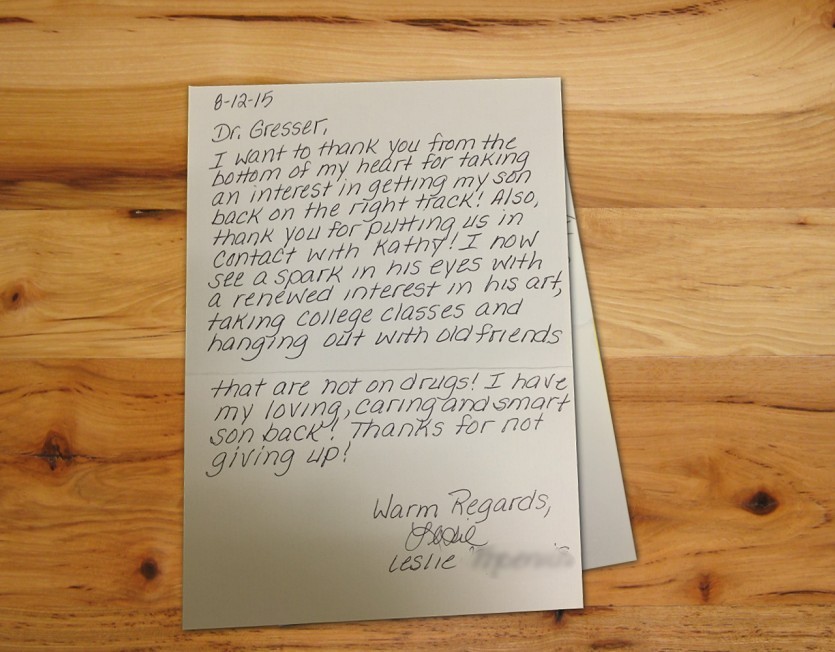 8-12-15
Dr. Gresser,
I want to thank you from the
bottom of my heart for taking
an interest in getting my son
back on the right track! Also,
thank you for putting us in
contact with Kathy! I now
see a spark in his eyes with
a renewed interest in his art,
taking college classes and
hanging out with old friends
that are not on drugs! I have
my loving, caring and smart
son back! Thanks for not
giving up!
Warm Regards,
Leslie
Leslie